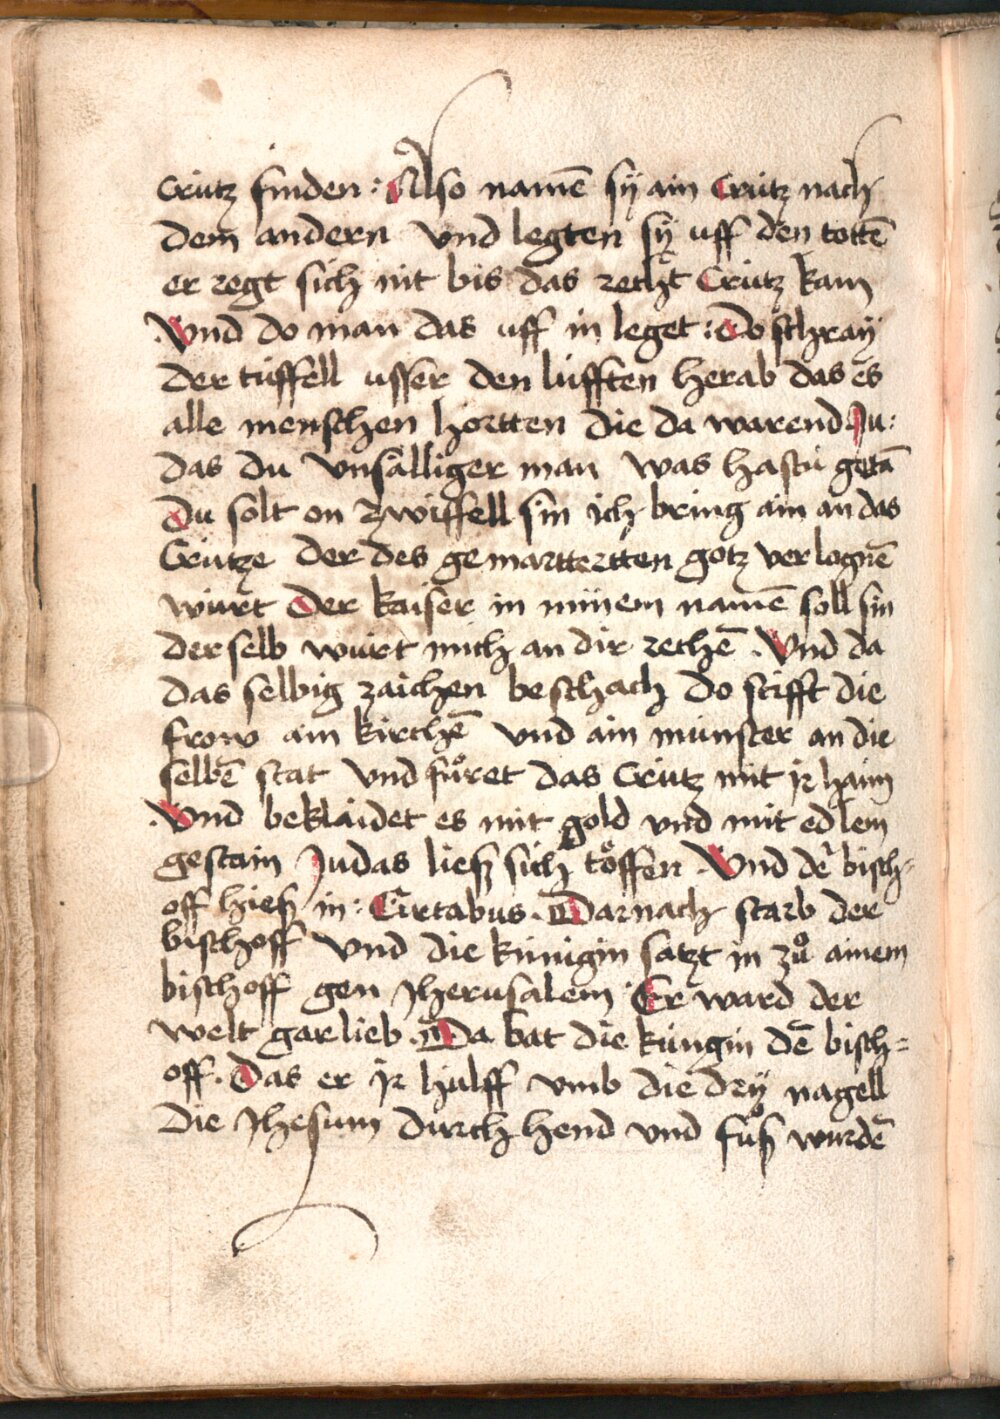 crütz finden : Also namē sÿ ain Crütz nach
dem andern vnd legten sÿ uff den tottē
er regt sich nit bis das recht Crütz kam
Vnd do man das uff in leget : Do schray
der tüffell usser den lüfften herab das es
alle menschen hortten die da warend Ju:
das du vnsälliger man was hastu getā
Du solt on zwiffell sin ich bring ain an das
Crütze der des gemarttertten gotz verlognē
würt Der kaiser in minem namē soll sin
der selb würt mich an dir rechē . Vnd da
das selbig zaichen beschach do stifft die
frow ain kirchē vnd ain münster an die
selbē stat vnd fůret das Crütz mit ir haim
Vnd beklaidet es mit gold vnd mit edlem
gestain Judas ließ sich töffen . Vnd der bisch=
off hieß in : Cirtabus . Darnach starb der
bischoff vnd die künigin satzt in zů ainem
bischoff gen Jherusalem Er ward der
welt gar lieb . Da bat die küngin dē bisch=
off . Das er ir hulff vmb die dry nagell
Die Jhesum durch hend vnd fůß wurdē